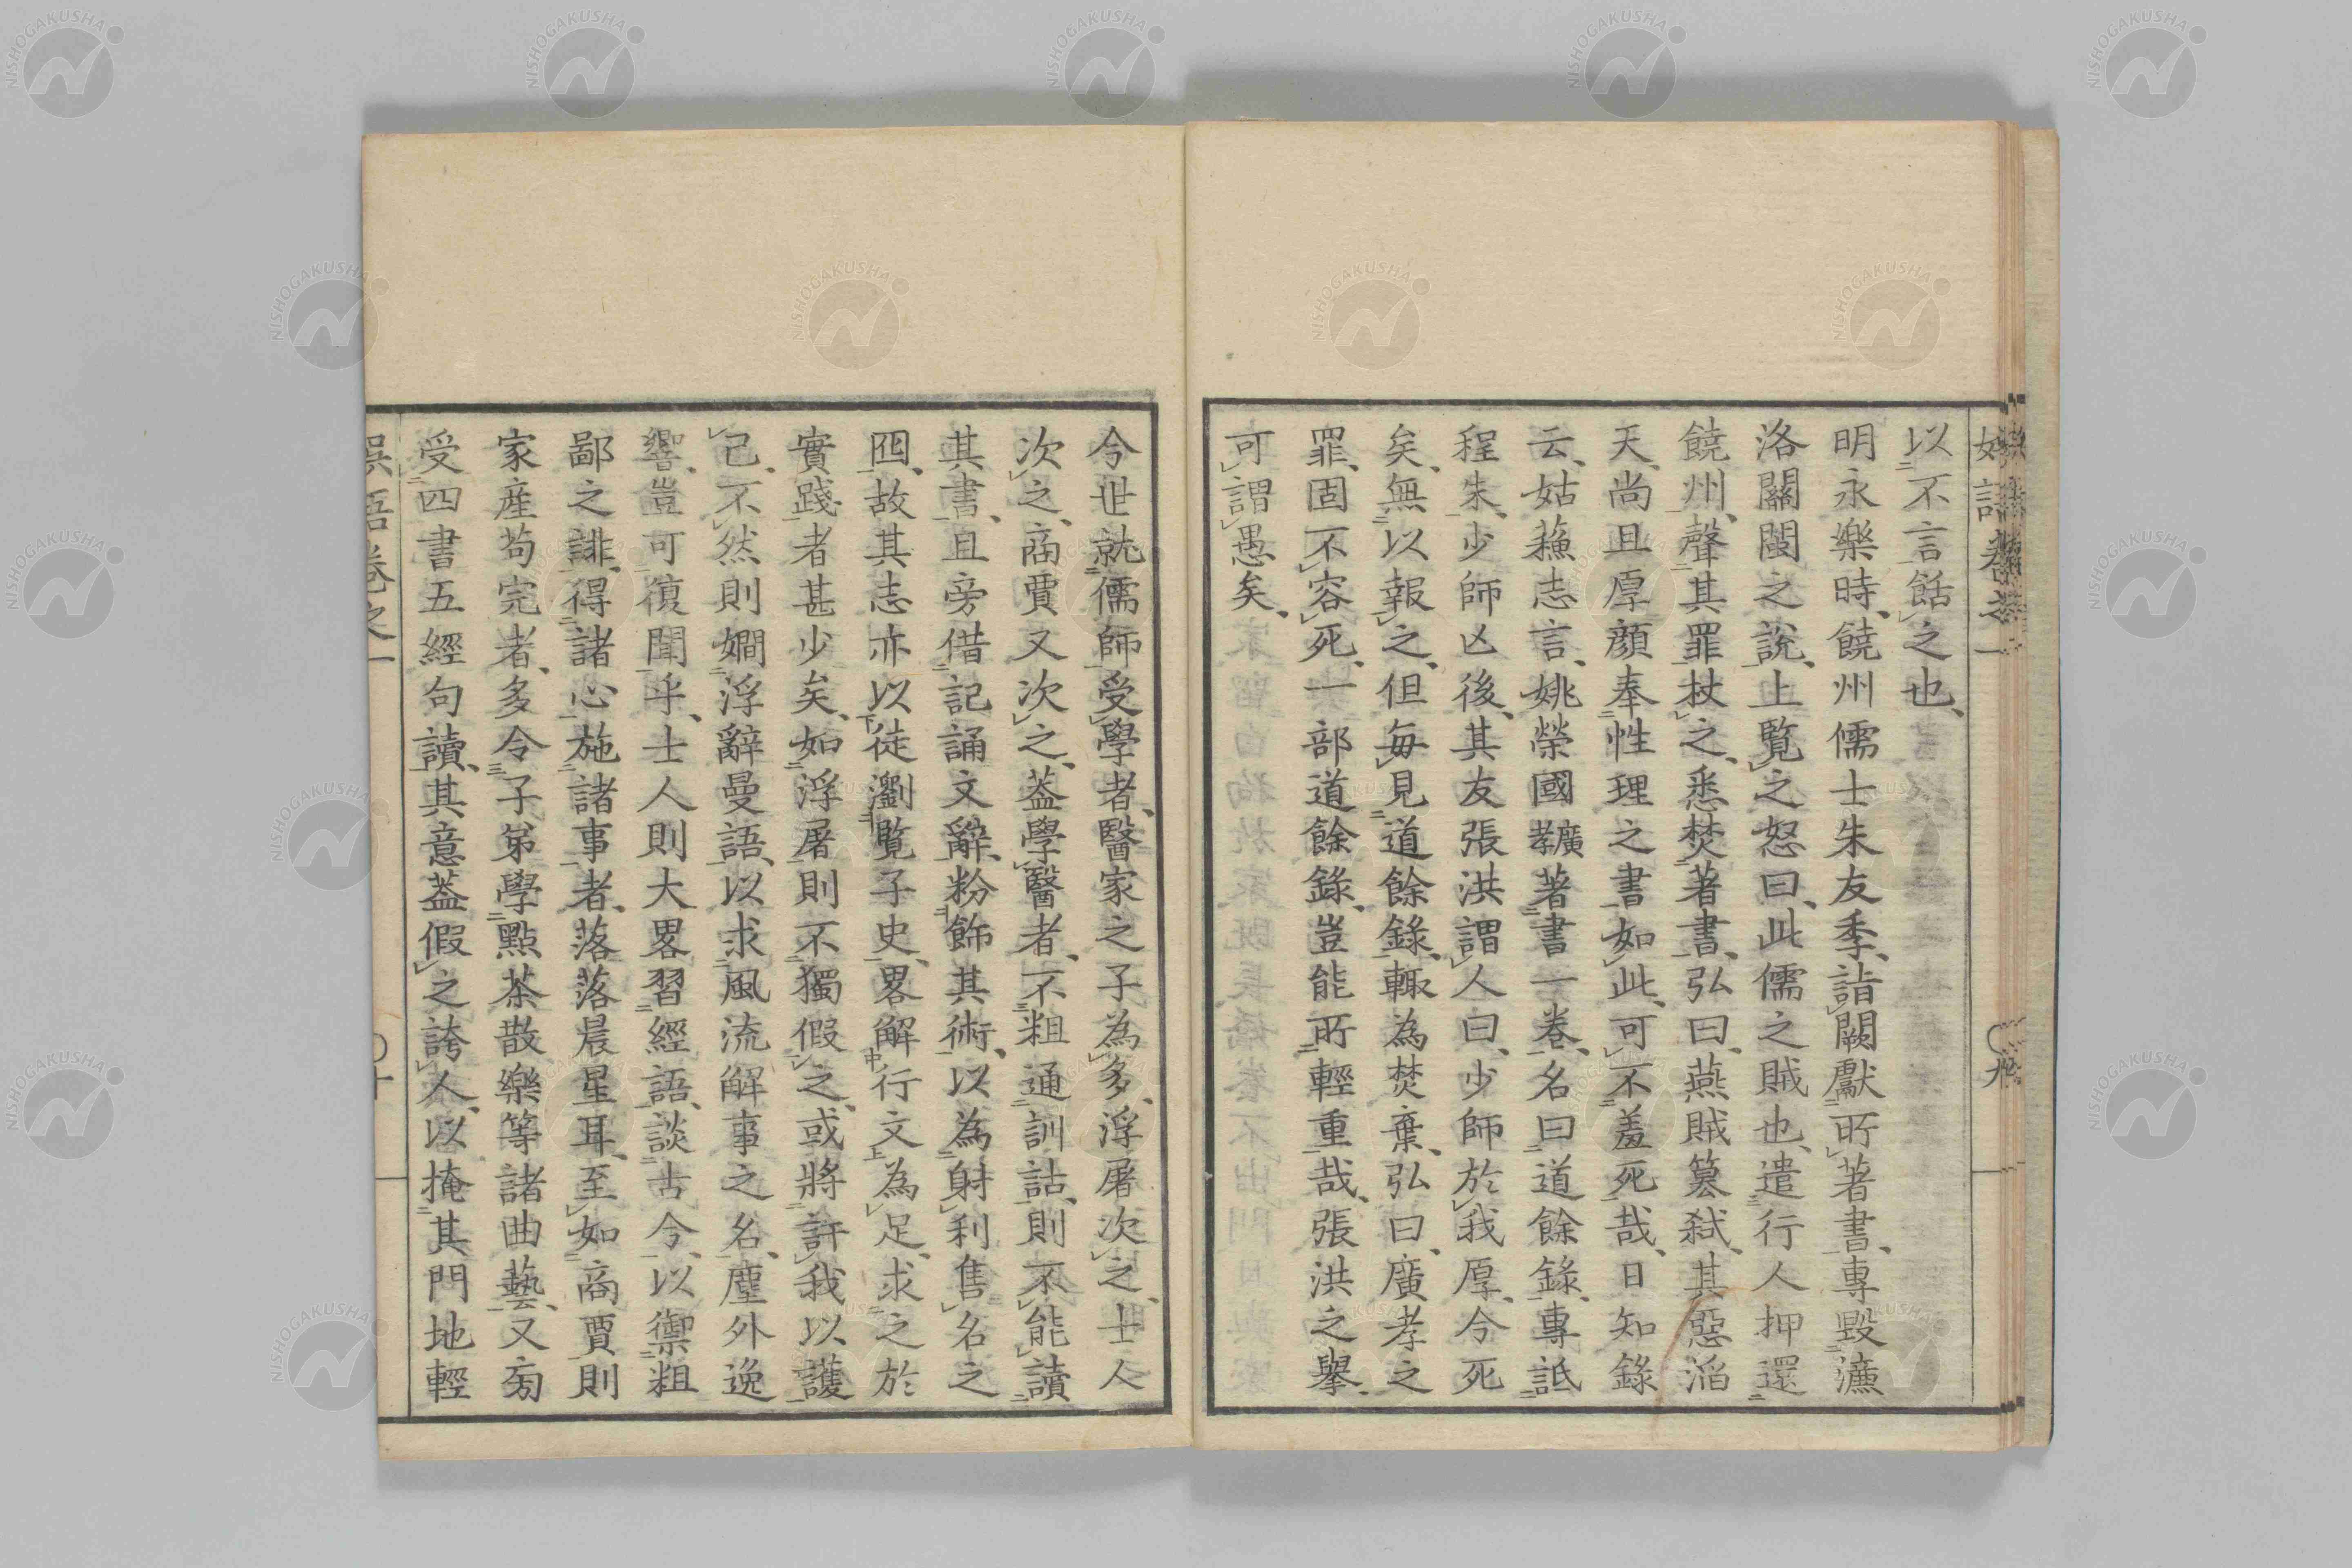 以不言餂之也、
明永樂時、饒州儒士朱友季、詣闕獻所著書、專毀濂
洛關閩之說、上覽之怒曰、此儒之賊也、遣行人押還
饒州、聲其罪杖之、悉焚著書、弘曰、燕賊簒弑、其惡滔
天、尚且厚顏奉性理之書如此、可不羞死哉、日知錄
云、姑蘓志言、姚榮國孝廣著書一卷、名曰道餘錄、專詆
程朱、少師亾後、其友張洪謂人曰、少師於我厚、今死
矣、無以報之、但每見道餘錄、輙為焚棄、弘曰、廣孝之
罪、固不容死、一部道餘錄、豈能所輕重哉、張洪之擧、
可謂愚矣、
今世就儒師受學者、醫家之子為多、浮屠次之、士人
次之、商賈又次之、葢學醫者、不粗通訓詁、則不能讀
其書、且旁借記誦文辭、粉飾其術、以為射利售名之
囮、故其志亦以徒瀏覽子史、畧解行文為足、求之於
實踐者甚少矣、如浮屠則不獨假之、或將訐我以護
己、不然則嫺浮辭曼語、以求風流解事之名、塵外逸
響、豈可復聞乎、士人則大畧習經語、談古今、以禦粗
鄙之誹、得諸心施諸事者、落落晨星耳、至如商賈則
家産苟完者、多令子弟學點茶散樂等諸曲藝、又旁
受四書五經句讀、其意葢假之誇人、以掩其門地輕
誤語卷之一
〇十